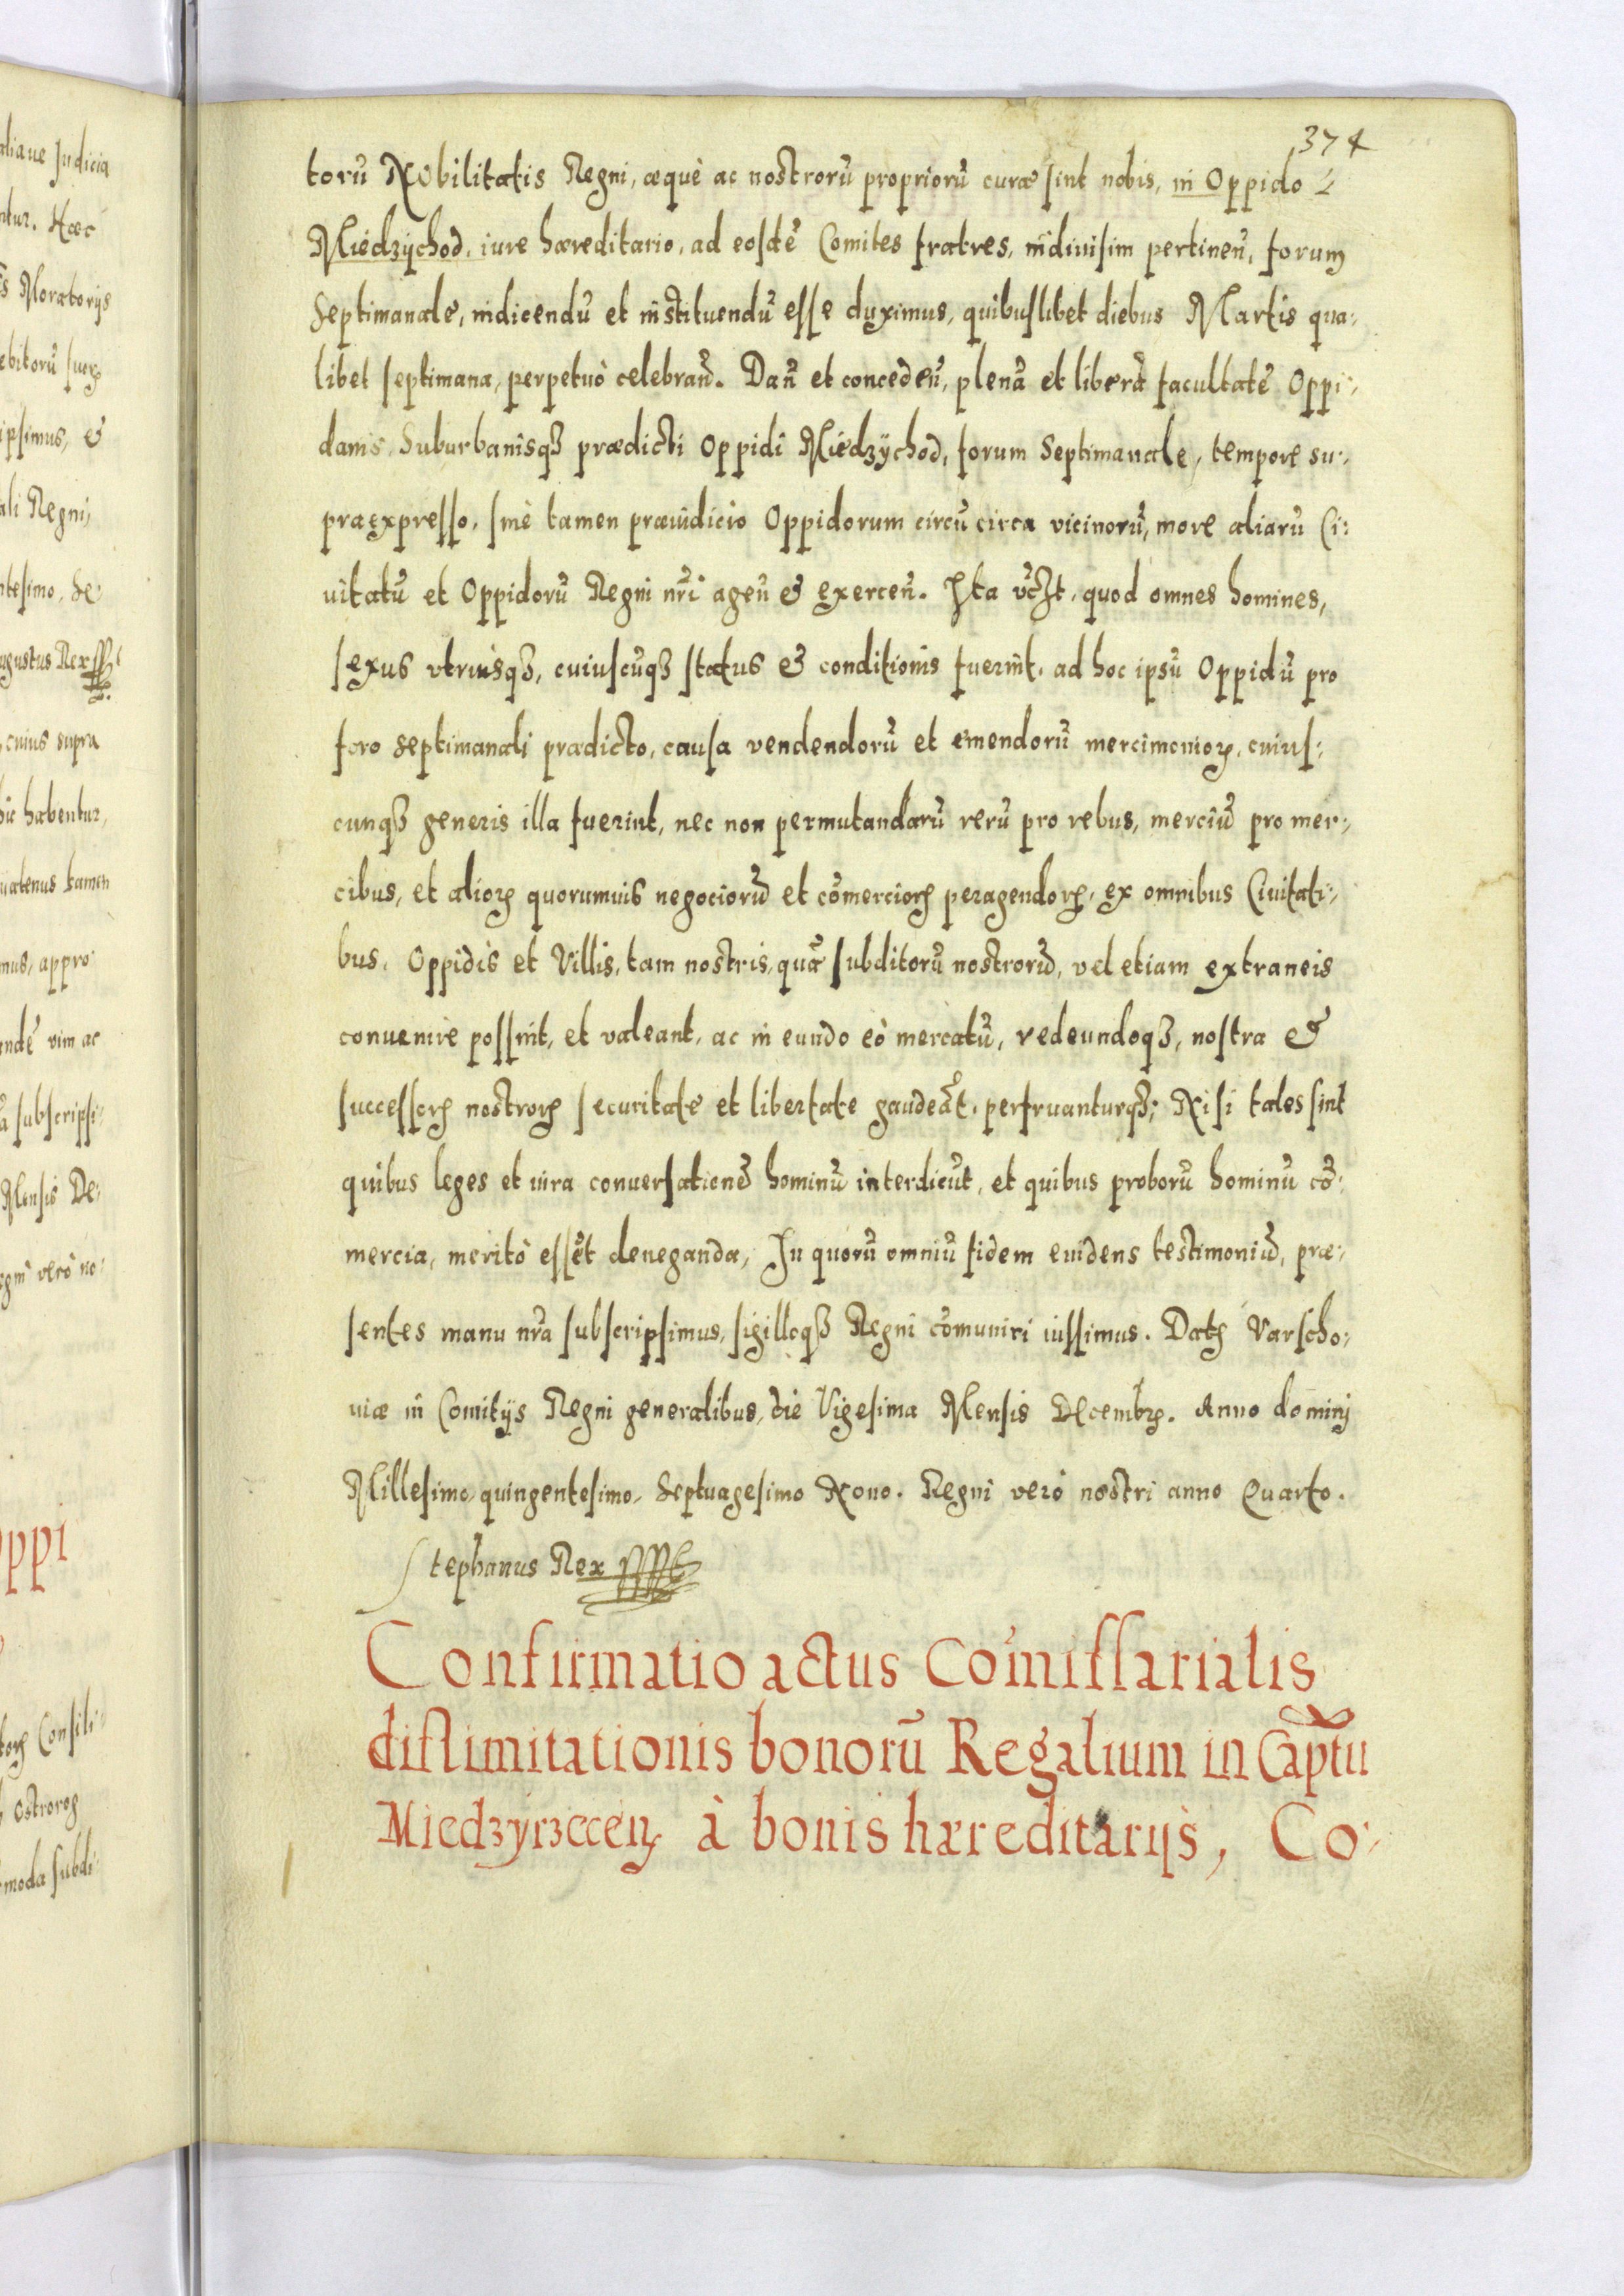 374
torũ Nobilitatis Regni, æquè ac nostrorũ propriorũ curæ sint nobis, in Oppido
Miedzychod, iure hæreditario, ad eosdẽ Comites fratres, indiuisim pertineñ, forum
septimanale, indicendũ et instituendũ esse duximus, quibuslibet diebus Martis qua-
libet septimana, perpetuò celebrañ. Dañ et concedeñ, plenã et liberã facultatẽ Oppi-
danis, Suburbanisqꝫ prædicti Oppidi Miedzychod, forum Septimanale, tempore su-
praexpresso, sine tamen præiudicio Oppidorum circũ circa vicinorũ, more aliarũ Ci-
uitatũ et Oppidorũ Regni nr̃i ageñ & exerceñ. Ita vt̃, quod omnes homines,
sexus vtriusqꝫ, cuiuscũqꝫ status & conditionis fuerint, ad hoc ipsũ Oppidũ pro
foro septimanali prædicto, causa vendendorũ et emendorũ mercimonioꝝ, cuius-
cunqꝫ generis illa fuerint, nec non permutandarũ rerũ pro rebus, merciũ pro mer-
cibus, et alioꝝ quorumuis negociorũ et com̃ercioꝝ peragendoꝝ, ex omnibus Ciuitati-
bus, Oppidis et Villis, tam nostris, quã subditorũ nostrorũ, vel etiam extraneis
conuenire possint, et valeant, ac in eundo eò mercatũ, redeundoqꝫ, nostra &
successoꝝ nostroꝝ securitate et libertate gaudeãt, perfruanturqꝫ; Nisi tales sint
quibus leges et iura conuersationẽ hominũ interdicũt, et quibus proborũ hominũ cõ-
mercia, meritò essẽt deneganda, In quorũ omniũ fidem euidens testimoniũ, præ-
sentes manu nr̃a subscripsimus, sigilloqꝫ Regni cõmuniri iussimus. Datꝫ Varscho-
uiæ in Comitijs Regni generalibus, die Vigesima Mensis Decembꝝ. Anno dominj
Millesimo, quingentesimo, septuagesimo Nono. Regni verò nostri anno Quarto.
Stephanus Rex
Confirmatio actus Com̃issarialis
dislimitationis bonorũ Regalium in Captũ
Miedzyrzeceñ à bonis hæreditarijs, Co-